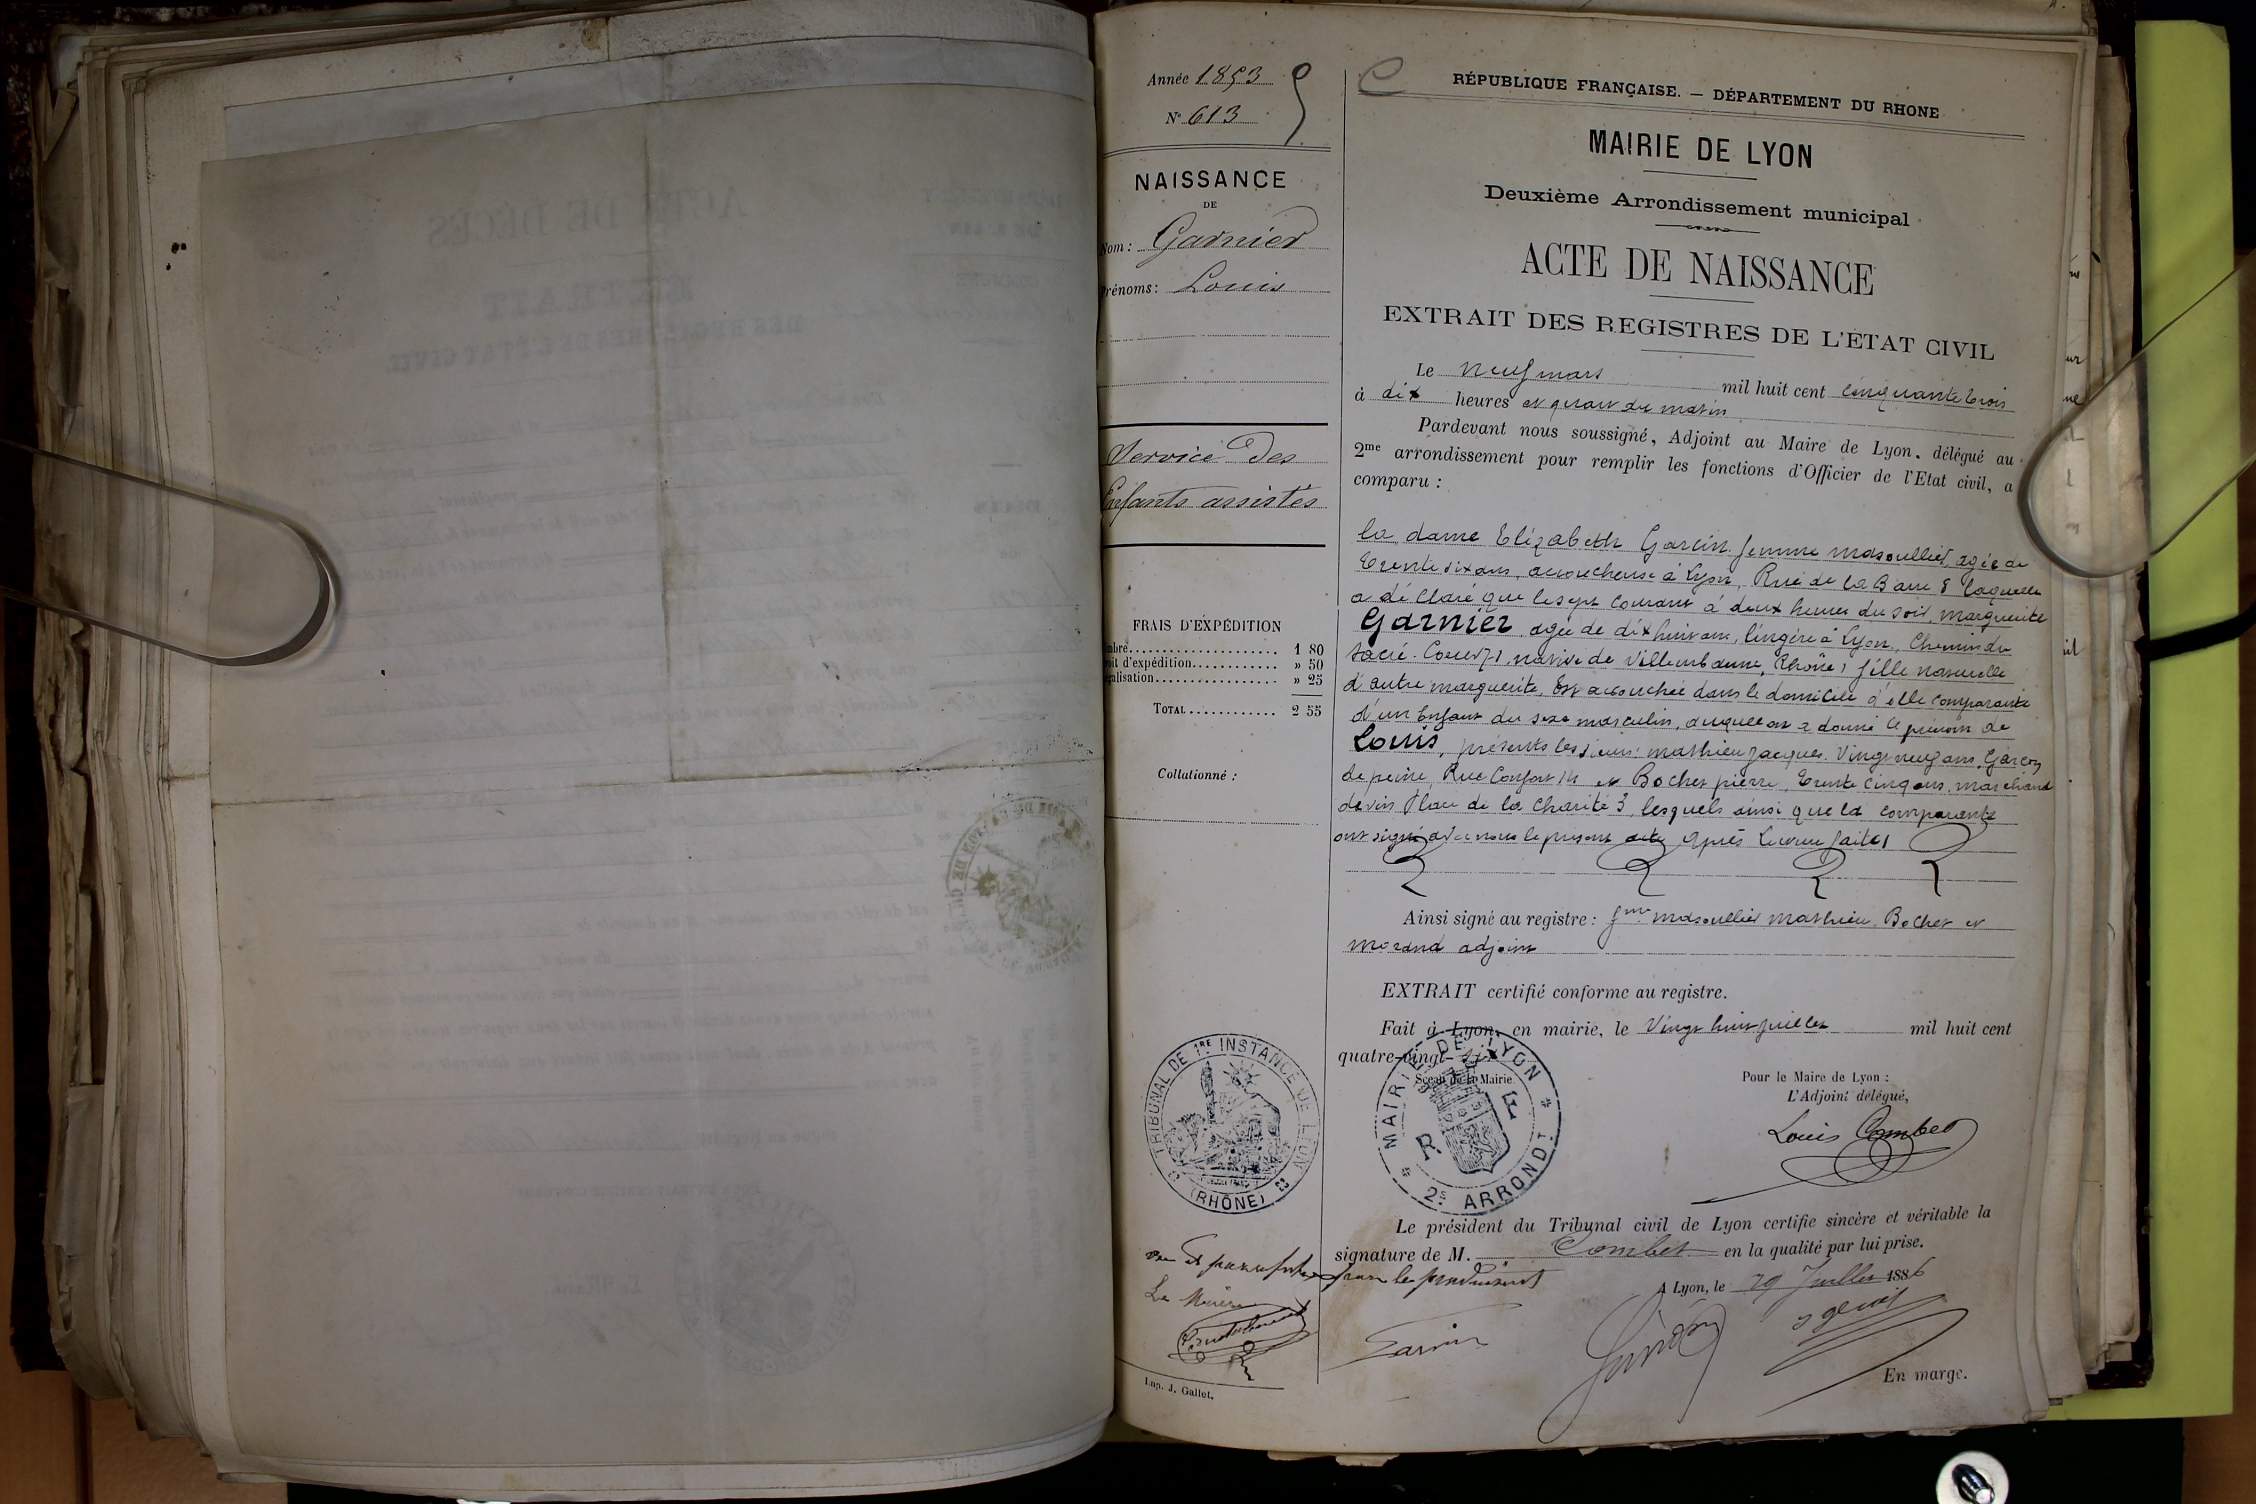 Année 1853
N° 613
NAISSANCE
DE
Nom : Garnier
Prénoms : Louis
Service des
Enfants assistés
FRAIS D'EXPÉDITION
Timbre..................... 1 80
Droit d'expédition............ » 50
Légalisation................. » 25
TOTAL............ 2 55
Collationné :
TRIBUNAL DE 1RE INSTANCE DE LYON
(RHÔNE)
Le Maire
Imp. J. Gallet.
RÉPUBLIQUE FRANÇAISE. — DÉPARTEMENT DU RHONE
MAIRIE DE LYON
Deuxième Arrondissement municipal
ACTE DE NAISSANCE
EXTRAIT DES REGISTRES DE L'ÉTAT CIVIL
Le neuf mars mil huit cent cinquante trois
à dix heures et quart du matin
Pardevant nous soussigné, Adjoint au Maire de Lyon, délégué au
2me arrondissement pour remplir les fonctions d'Officier de l'Etat civil, a
comparu :
la dame Elizabeth Garcin femme masoullier, agée de
trente six ans, accoucheuse à Lyon, Rue de la Barre 8 laquelle
a déclaré que le sept courant à deux heures du soir, marguerite
Garnier agée de dix huit ans, lingère à Lyon, Chemin du
Sacré-Coeur 71, native de Villeurbanne, Rhône, fille naturelle
d'autre marguerite, Est accouchée dans le domicile d'elle comparante
d'un Enfant du sexe masculin, auquel on a donné le prénom de
Louis, présents les sieurs mathieu Jacques, Vingt neuf ans, Garçon
de peine, Rue Confort 14 et Bochet pierre, trente cinq ans, marchand
de vin Place de la Charité 3, lesquels ainsi que la comparante
ont signé avec nous le present acte après lecture faite,
Ainsi signé au registre : fme masoullier mathieu, Bochet et
morand adjoint
EXTRAIT certifié conforme au registre.
Fait à Lyon, en mairie, le Vingt huit juillet mil huit cent
quatre-vingt-six
Sceau de la Mairie
MAIRIE DE LYON
R F
2E ARRONDT
Pour le Maire de Lyon :
L'Adjoint délégué,
Louis Combet
Le président du Tribunal civil de Lyon certifie sincère et véritable la
signature de M. Combet en la qualité par lui prise.
A Lyon, le 29 Juillet 1886
En marge.